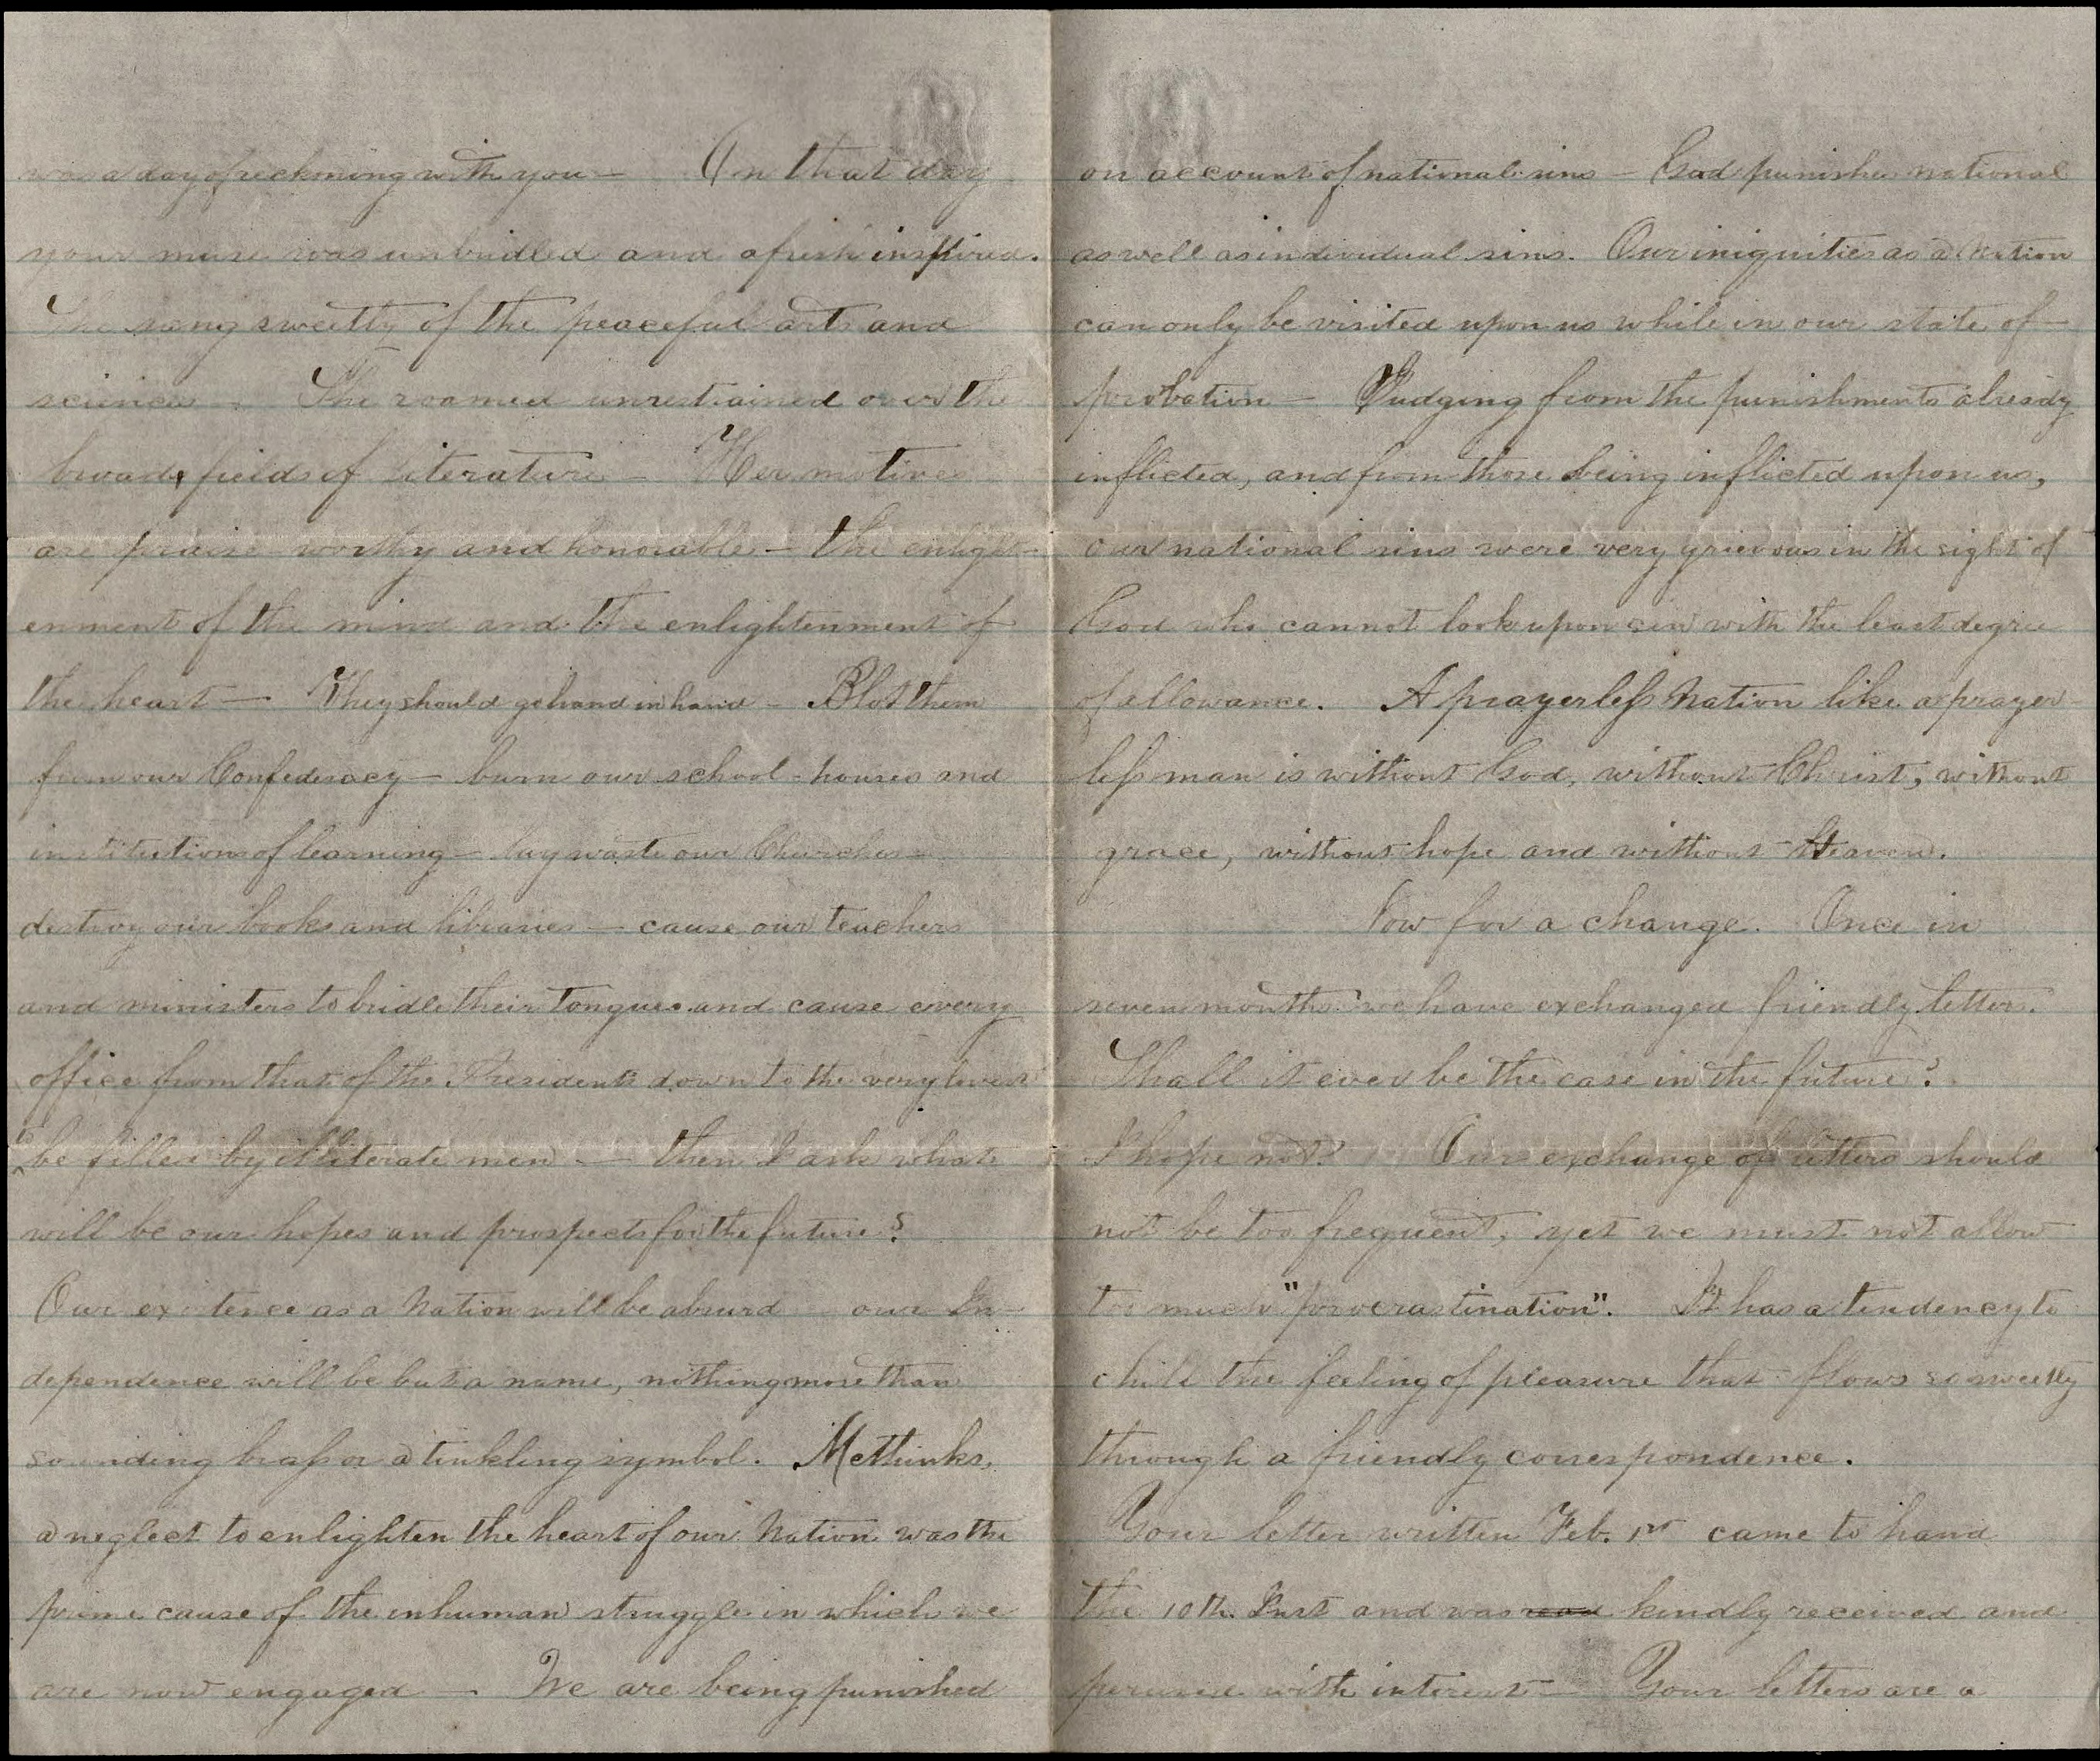 was a day of reckoning with you — On that day
your muse was unbridled and afresh inspired.
She sang sweetly of the peaceful arts and
sciences — She roamed unrestrained over the
broad fields of literature — Her motives
are praise-worthy and honorable — the enlight-
enment of the mind and the enlightenment of
the heart — They should go hand in hand — Blot them
from our Confederacy — burn our school-houses and
institutions of learning — lay waste our Churches —
destroy our books and libraries — cause our teachers
and ministers to bridle their tongues and cause every
office from that of the Presidents down to the very lowest
to be filled by illiterate men — then I ask what
will be our hopes and prospects for the future?
Our existence as a Nation will be absurd — our In-
dependence will be but a name, nothing more than
sounding brass or a tinkling symbol. Methinks,
a neglect to enlighten the heart of our Nation was the
prime cause of the inhuman struggle in which we
are now engaged — We are being punished
on account of national sins — God punishes national
as well as individual sins. Our iniquities as a Nation
can only be visited upon us while in our state of
probation — Judging from the punishments already
inflicted, and from those being inflicted upon us,
our national sins were very grievous in the sight of
God who cannot look upon sin with the least degree
of allowance. A prayerless Nation like a prayer-
less man is without God, without Christ, without
grace, without hope and without Heaven.
Now for a change. Once in
seven months we have exchanged friendly letters.
Shall it ever be the case in the future?
I hope not? Our exchange of letters should
not be too frequent, yet we must not allow
too much "procrastination". It has a tendency to
chill the feeling of pleasure that flows so sweetly
through a friendly correspondence.
Your letter written Feb. 1st came to hand
the 10th Inst and was read kindly received and
perused with interest — Your letters are a